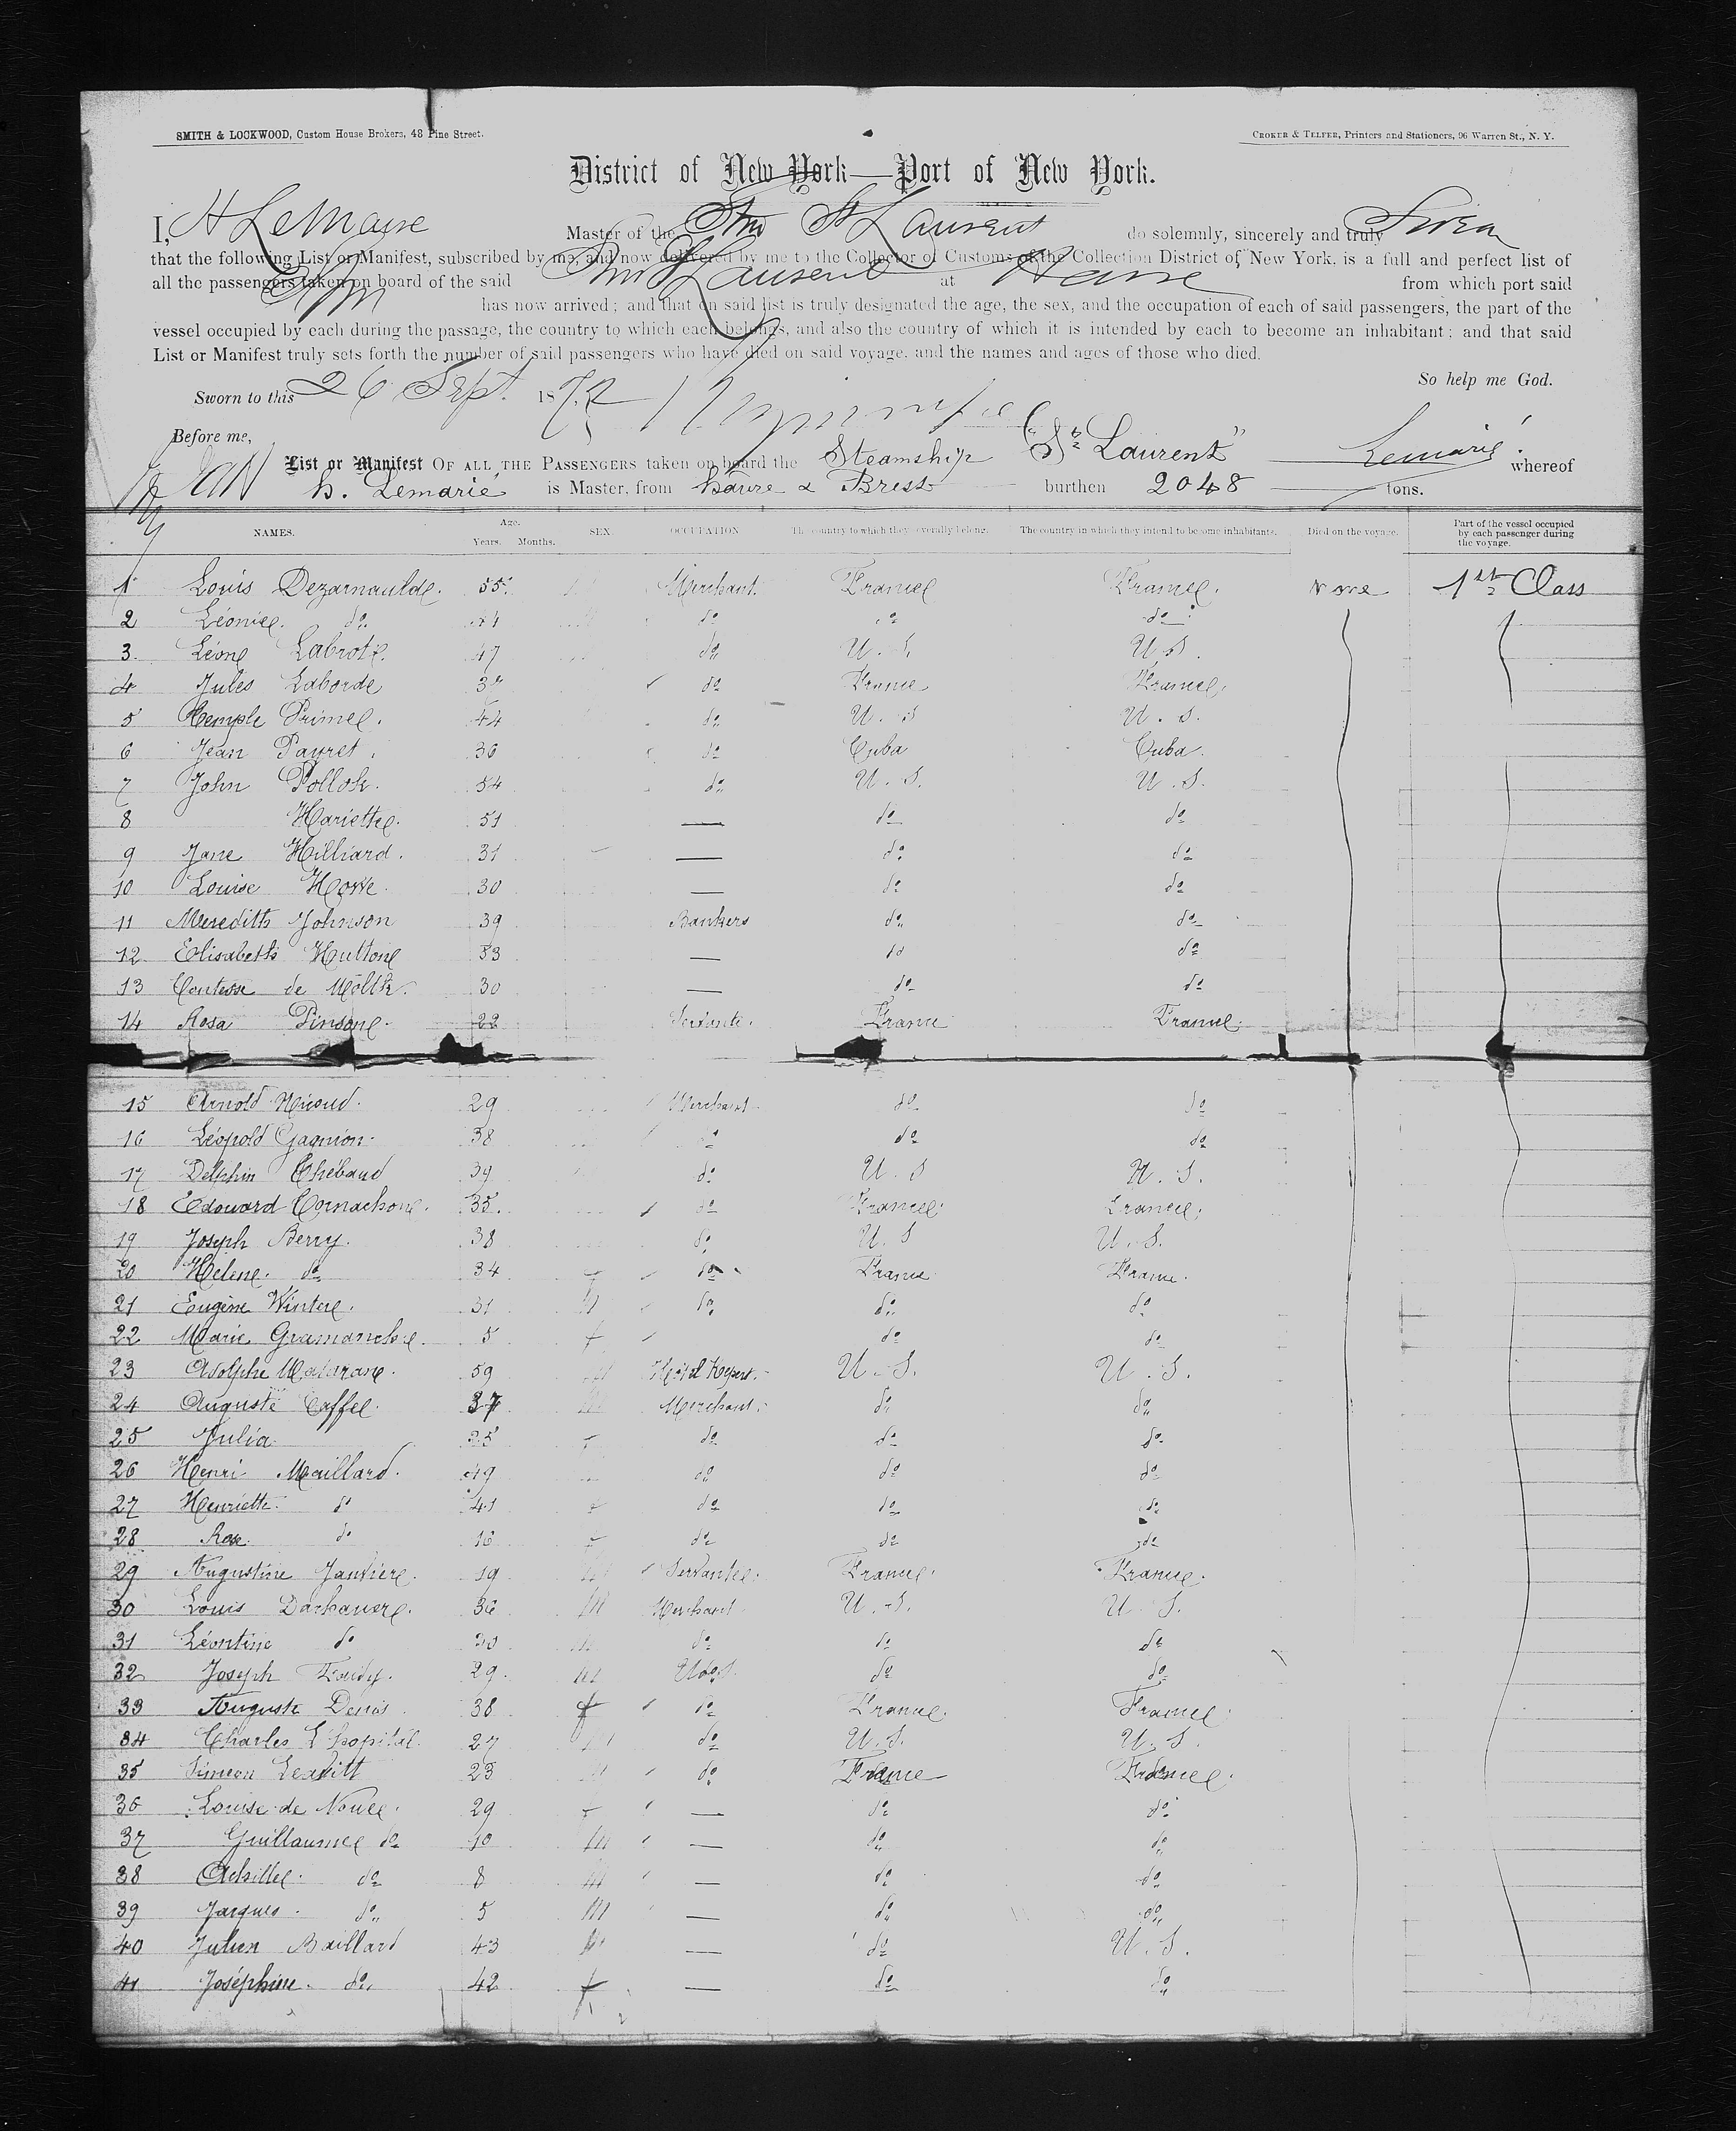 SMITH & LOCKWOOD, Custom House Brokers, 48 Pine Street.
CROKER & TELFER, Printers and Stationers, 96 Warren St., N. Y.
District of New York—Port of New York.
I, H LeMarie Master of the Stmr St Laurent do solemnly, sincerely and truly Swear
that the following List or Manifest, subscribed by me, and now delivered by me to the Collector of Customs of the Collection District of New York, is a full and perfect list of
all the passengers taken on board of the said Stmr St Laurent at Havre from which port said
Stmr has now arrived; and that on said list is truly designated the age, the sex, and the occupation of each of said passengers, the part of the
vessel occupied by each during the passage, the country to which each belongs, and also the country of which it is intended by each to become an inhabitant; and that said
List or Manifest truly sets forth the number of said passengers who have died on said voyage, and the names and ages of those who died.
So help me God.
Sworn to this 26 Sept. 1872
Before me,
List or Manifest OF ALL THE PASSENGERS taken on board the Steamship "St Laurent" Lemarié whereof
h. Lemarié is Master, from havre & Brest burthen 2048 tons.
NAMES. Age. Years. Months. SEX. OCCUPATION The country to which they severally belong. The country in which they intend to become inhabitants. Died on the voyage. Part of the vessel occupied by each passenger during the voyage.
1 Louis 55 Merchant. France France. None 1st Class
2 Léonice. do. do do do
3 Léone 47 do U. S. U S.
4 Jules Laborde do France France.
5 Temple Prime. 44 do U. S U. S.
6 Jean Payret. 36 do Cuba Cuba.
7 John Pollok. 54 do U. S. U. S.
8 Hariette. 51 — do do
9 Jane Hilliard. 31 — do do
10 Louise 30 — do do
11 Meredith Johnson 39 Bankers do do
12 Elisabeth Huttone 53 — do do
13 Contesse de Moltk. 30 — do do
14 Rosa Pinsone. 22 Servante. France France.
15 Arnold 29 Merchant do do
16 Léopold Gagnion. 38 do do do
17 Delphin Thébaud 39 do U. S U. S.
18 Edouard 35. do France. France.
19 Joseph Berry. 38 do U. S U. S.
20 Hélène. do 34 do France France.
21 Eugène Winter. 31 do do do
22 Marie 5 f do do
23 Adolphe 59 Hotel Keeper. U. S. U. S.
24 Auguste Caffe. 37 Merchant. do do
25 Julia. 25 do do do
26 Henri Maillard. 49 do do do
27 Henriette. do 41 do do do
28 Rose. do 16 do do do
29 Augustine 19 Servante. France. France.
30 Louis 36 m Merchant U. S. U. S.
31 Léontine do 30 m do do do
32 Joseph 29. m do do
33 Auguste Denis 38 f do France. France
34 Charles L'hopital. 27 do U. S. U. S.
35 Simeon Leavitt 23 do France France.
36 Louise de 29 f — do do
37 Guillaume do 10 m — do do
38 Achille. do 8 m — do do
39 Jacques. do 5 m — do do
40 Julien Baillard 43 m — do U. S.
41 Joséphine. do. 42 f — do do